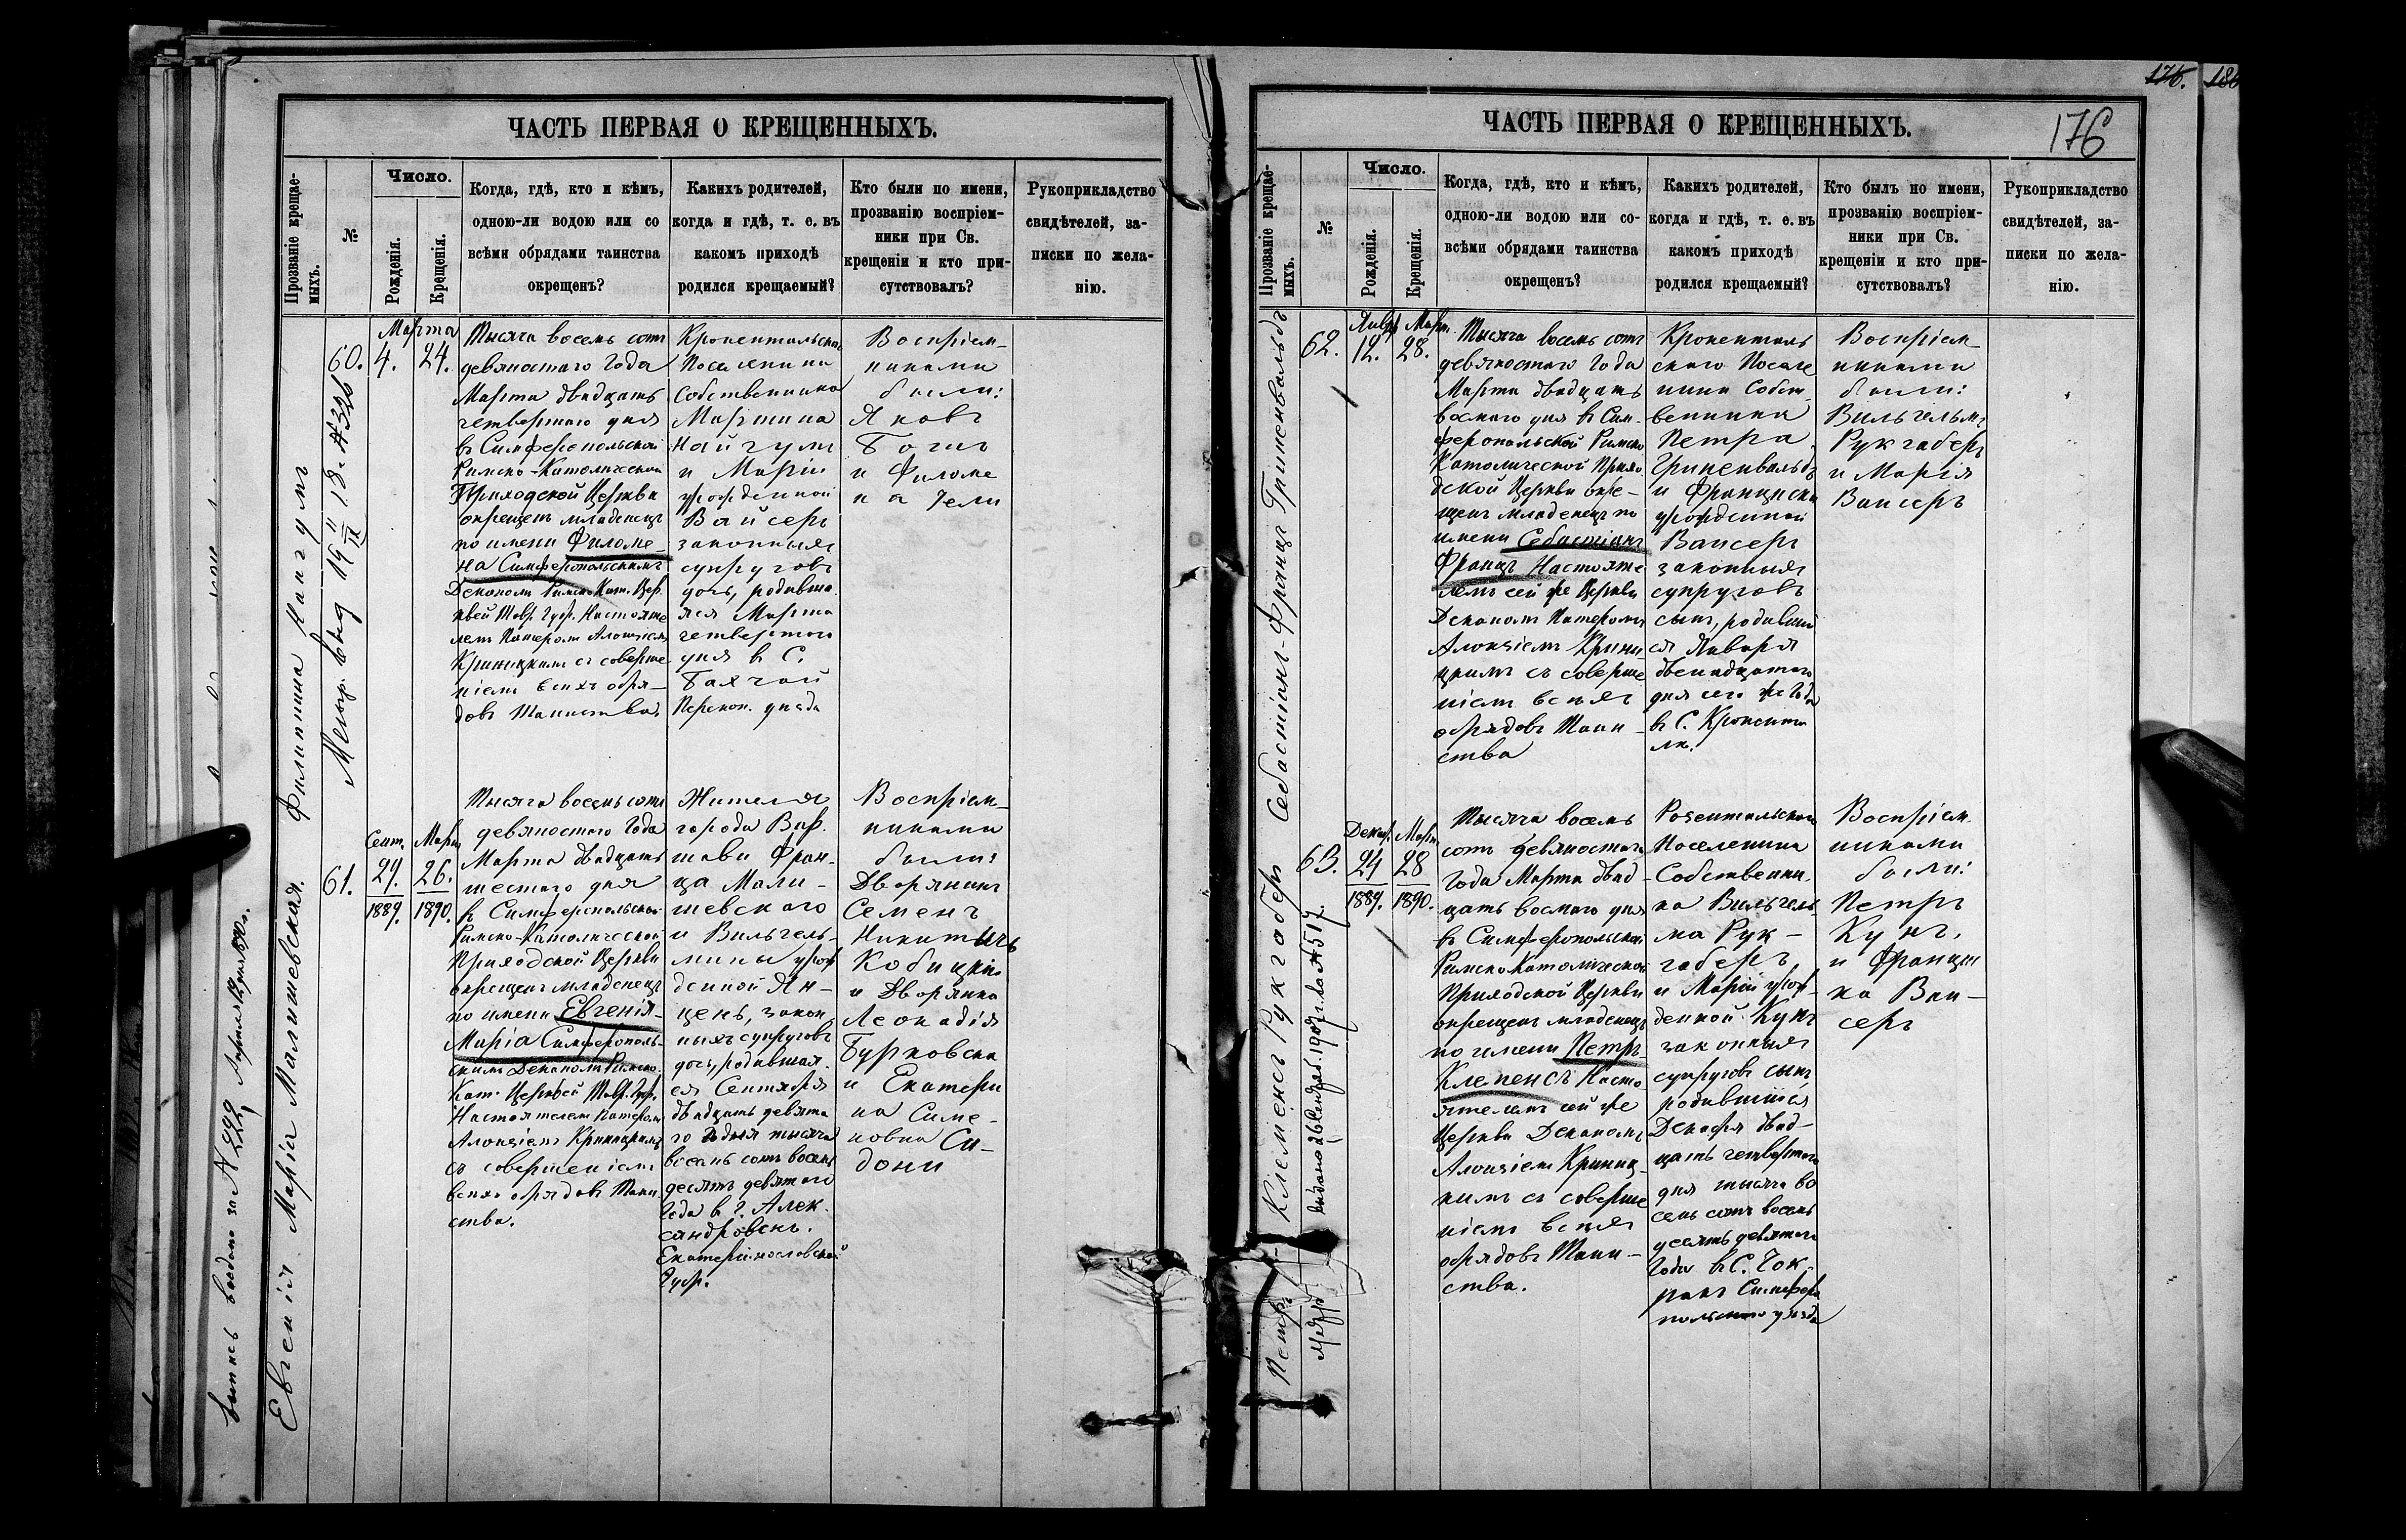 ЧАСТЬ ПЕРВАЯ О КРЕЩЕННЫХЪ.
Прозваніе крещае-
мыхъ.
№
Число.
Рожденія.
Крещенія.
Когда, гдѣ, кто и кѣмъ,
одною-ли водою или со
всѣми обрядами таинства
окрещенъ?
Какихъ родителей,
когда и гдѣ, т. е. въ
какомъ приходѣ
родился крещаемый?
Кто были по имени,
прозванію воспріем-
ники при Св.
крещеніи и кто при-
сутствовалъ?
Рукоприкладство
свидѣтелей, за-
писки по жела-
нію.
60.
Марта
4. 24.
Тысяча восемь сотъ
девяностаго года
Марта двадцать
четвертаго дня
въ Симферопольской
Римско-Католической
Приходской Церкви
окрещенъ младенецъ
по имени Филоме-
на Симферопольскимъ
Деканомъ Римско Кат. Цер.
квей Тавр. Губ. Настояте
лемъ Патеромъ Алоизіемъ
Криницкимъ съ соверше-
ніемъ всѣхъ обря-
довъ Таинства.
Кронентальскаго
Поселянина
Собственника
Мартина
и Маріи
урожденной
Вайсеръ
законныхъ
супруговъ
дочь, родивша-
яся Марта
четвертаго
дня въ С.
Бахчай
Перекоп. уѣзда
Воспріем-
никами
были:
Яковъ
и Филоме
на
61.
Сент. Март
29. 26.
1889. 1890.
Евгенія Марія Малишевская.
Тысяча восемь сотъ
девяностаго года
Марта двадцать
шестаго дня
въ Симферопольской
Римско-Католической
Приходской Церкви
окрещенъ младенецъ
по имени Евгенія-
Марія Симферополь-
скимъ Деканомъ Римско.
Кат. Церквей Тавр. Губ.
Настоятелемъ Патеромъ
Алоизіемъ Криницкимъ
съ совершеніемъ
всѣхъ обрядовъ Таин-
ства.
Жителя
города Вар-
шавы Фран-
ца Мали-
шевскаго
и Вильгель-
мины урож
денной Ян-
ценъ, закон
ныхъ супруговъ
дочь, родившая-
ся Сентября
двадцать девята
го дня тысяча
восемь сотъ восемь
десять девятаго
года въ г. Алек-
сандровскъ.
Екатеринославской
Губ.
Воспріем-
никами
были:
Дворянинъ
Семенъ
Никитичъ
Кобицкій
и Дворянка
Леокадія
Бурковска
и Екатери
на Симе-
новна Си-
дони
176.
ЧАСТЬ ПЕРВАЯ О КРЕЩЕННЫХЪ.
176
Прозваніе крещае-
мыхъ.
№
Число.
Рожденія.
Крещенія.
Когда, гдѣ, кто и кѣмъ,
одною-ли водою или со-
всѣми обрядами таинства
окрещенъ?
Какихъ родителей,
когда и гдѣ, т. е. въ
какомъ приходѣ
родился крещаемый?
Кто былъ по имени,
прозванію воспріем-
ники при Св.
крещеніи и кто при-
сутствовалъ?
Рукоприкладство
свидѣтелей, за-
писки по жела-
нію.
Себастіанъ-Францъ Гриненвальдъ
62.
Январ Март.
12. 28.
Тысяча восемь сотъ
девяностаго года
Марта двадцать
восмаго дня въ Сим-
феропольской Римско
Католической Прихо
дской Церкви окре-
щенъ младенецъ по
имени Себастіанъ
Францъ Настояте
лемъ сей же Церкви
Деканомъ Патеромъ
Алоизіемъ Крини
цкимъ съ соверше
ніемъ всѣхъ
обрядовъ Таин-
ства
Кроненталь
скаго Поселя
нина Собст-
венника
Петра
Гриненвальдъ
и Франциски
урожденной
Вансеръ
законныхъ
супруговъ
сынъ, родивший
ся Января
двенадцатаго
дня сего же года
въ С. Кронента
лѣ.
Воспріем-
никами
были:
Вильгельмъ
Рукгаберъ
и Марія
Вансеръ
Петръ-Клеменсъ Рукгаберъ
63.
Декаб. Март.
24 28
1889. 1890.
Тысяча восемь
сотъ девяностаго
года Марта двад-
цать восмаго дня
въ Симферопольской
Римско Католической
Приходской Церкви
окрещенъ младенецъ
по имени Петръ-
Клеменсъ Насто-
ятелемъ сей же
Церкви Деканомъ
Алоизіемъ Криниц-
кимъ съ соверше
ніемъ всѣхъ
обрядовъ Таин-
ства.
Розентальскаго
Поселянина
Собственни-
ка Вильгель
ма Рук-
габеръ
и Маріи урож-
денной Кунъ
законныхъ
супруговъ сынъ,
родившійся
Декабря двад-
цать четвертаго
дня тысяча во
семь сотъ восемь
десять девятаго
года въ С. Чок-
ракъ Симферо
польскаго уѣзда
Воспріем-
никами
были:
Петръ
Кунъ,
и Францис
ка Ван-
серъ